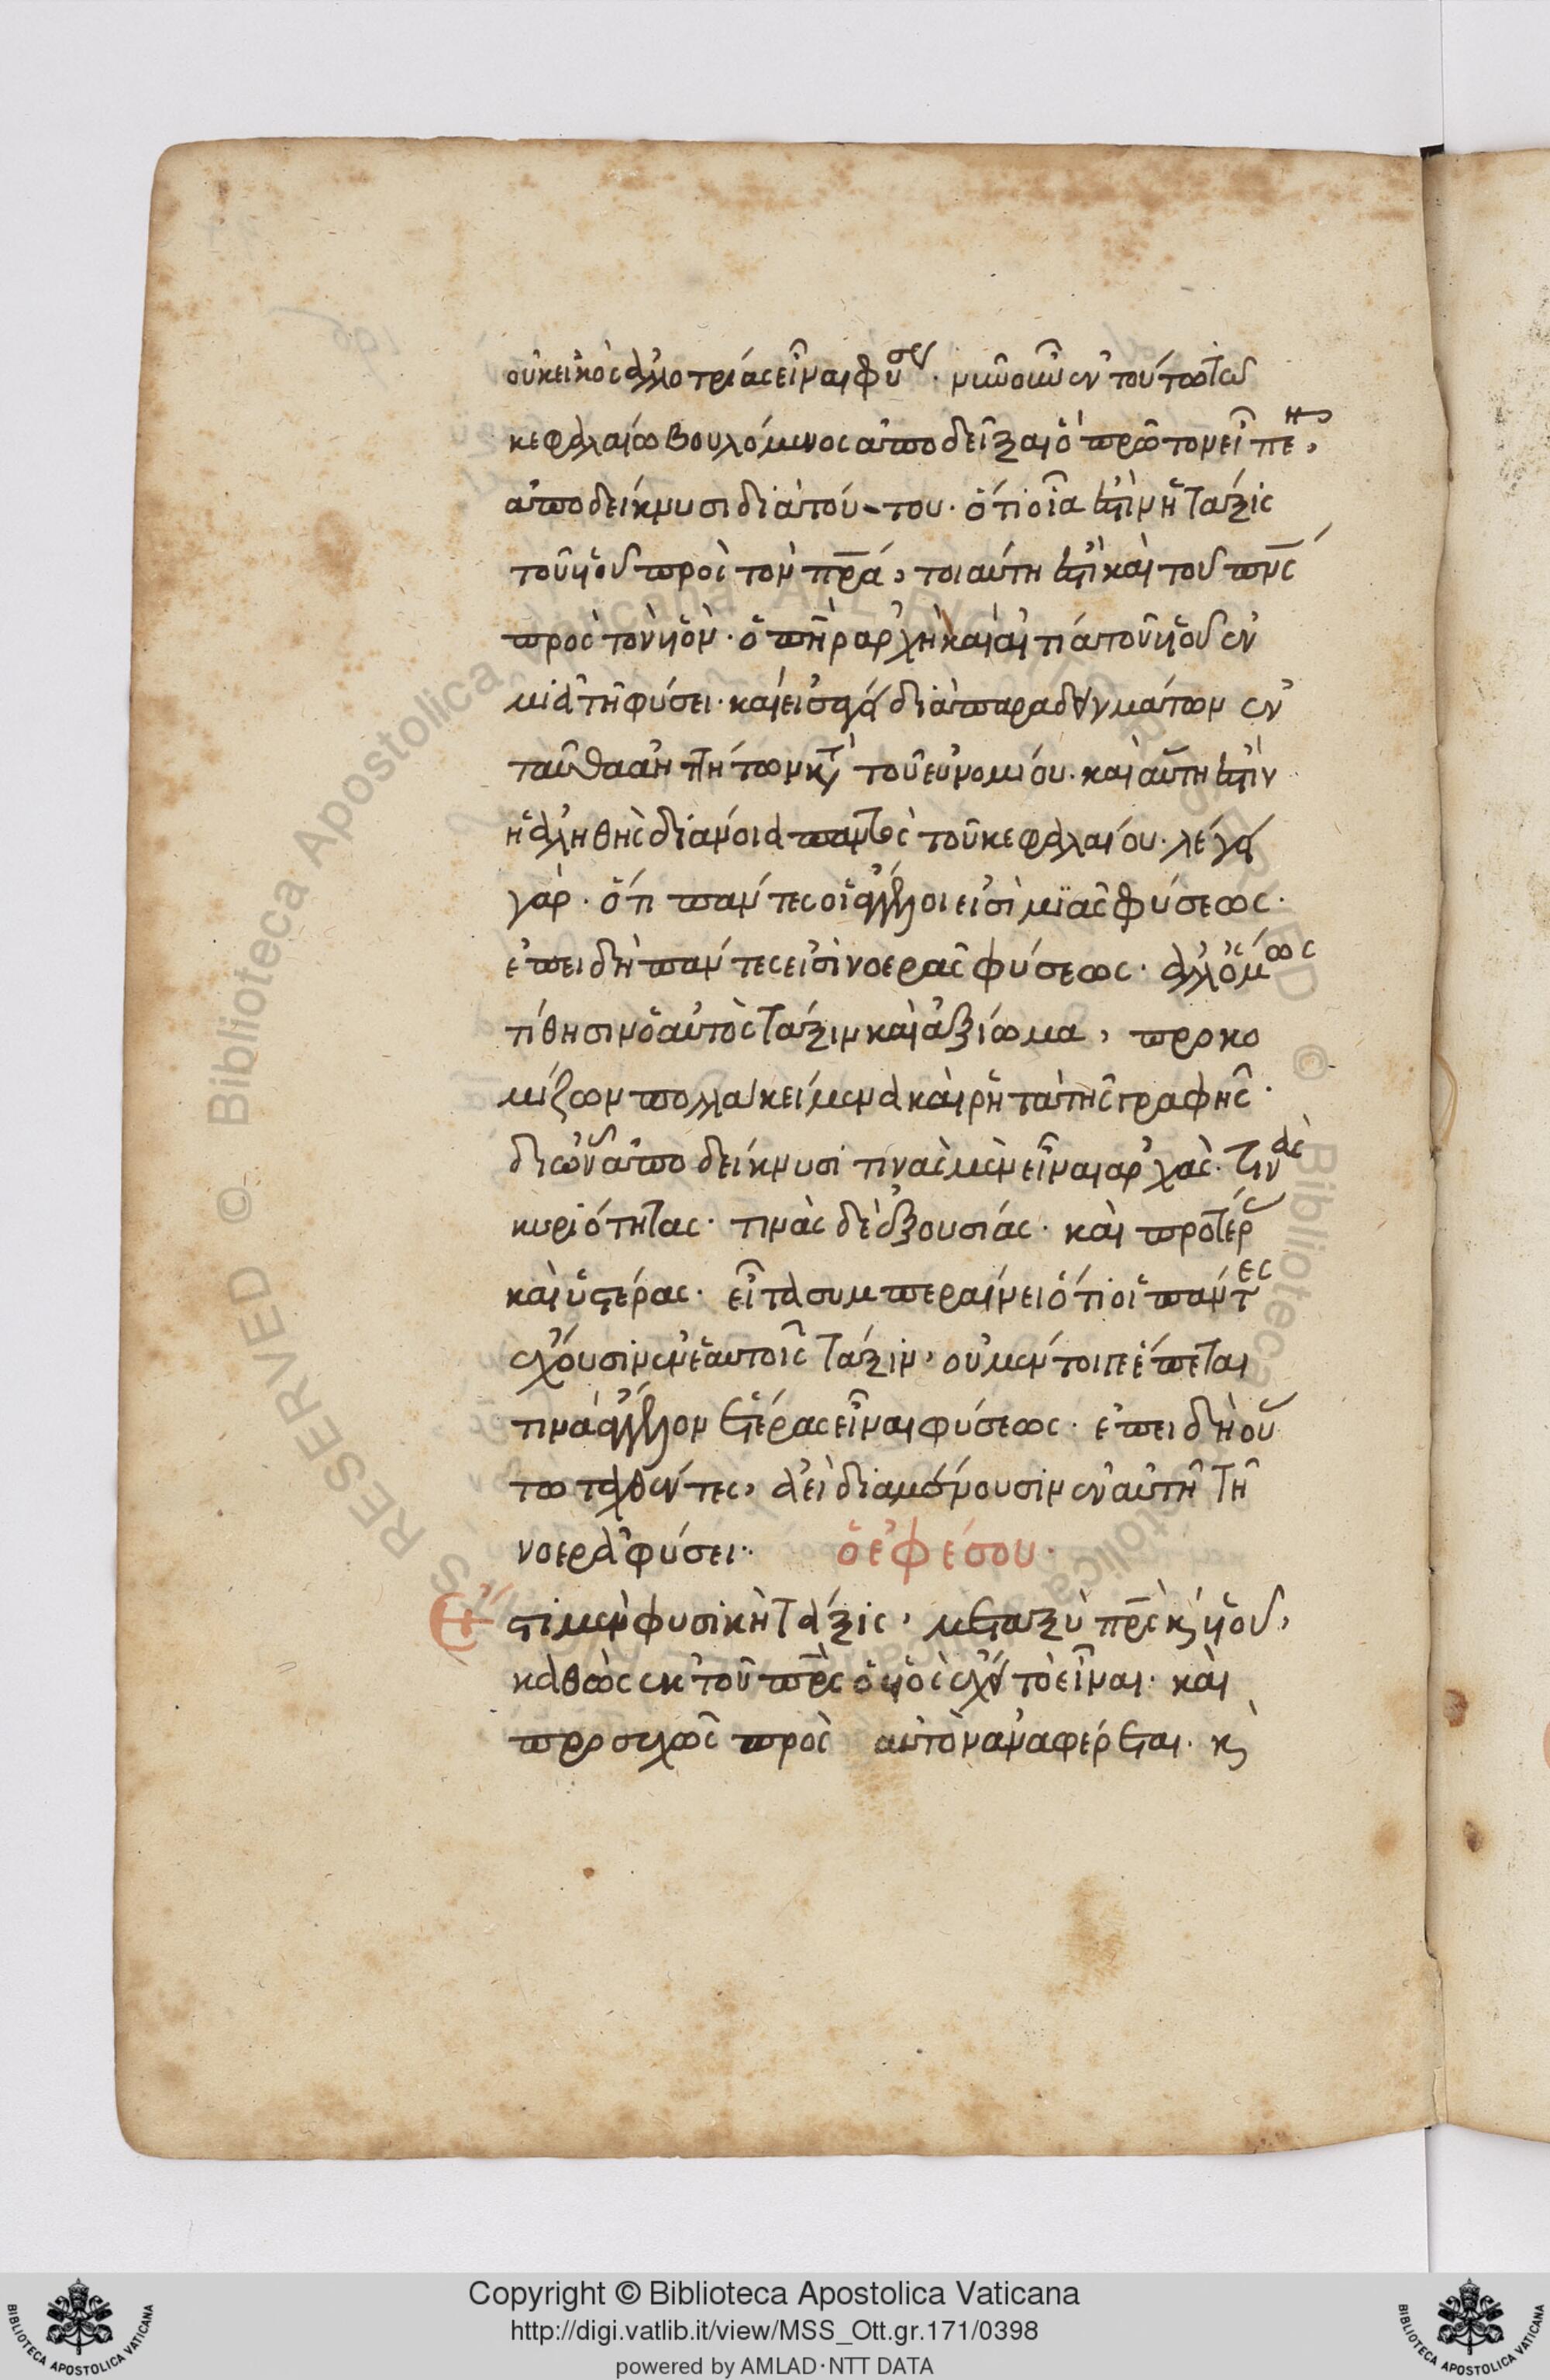 οὐκ εἰκὸς ἀλλοτρίας εἶναι φύσεως· νῦν οὖν ἐν τούτω τῶ
κεφαλαίω βουλόμενος ἀποδεῖξαι ὃ πρῶτον εἶπεν,
ἀποδείκνυσι διὰ τούτου· ὅτι οἵα ἐστὶν ἡ τάξις
τοῦ υἱοῦ πρὸς τὸν πρα, τοιαύτη ἐστὶ καὶ τοῦ πνς
πρὸς τὸν υἱόν· ὁ πηρ ἀρχὴ καὶ αἰτία τοῦ υἱοῦ ἐν
μιᾶ τῆ φύσει· καὶ εἰσάγει διὰ παραδειγμάτων ἐν
ταῦθα ἀντὶ τῶν κατὰ τοῦ εὐνομίου· καὶ αὕτη ἐστὶν
ἡ ἀληθὴς διάνοια παντὸς τοῦ κεφαλαίου· λέγει
γάρ· ὅτι πάντες οἱ ἄγγελοι εἰσὶ μιᾶς φύσεως·
ἐπειδὴ πάντες εἰσὶ νοερᾶς φύσεως· ἀλλ' ὅμως
τίθησιν ὁ αὐτὸς τάξιν καὶ ἀξίωμα, προκο
μίζων πολλὰ κείμενα καὶ ρητὰ τῆς γραφῆς·
δι' ὧν ἀποδείκνυσι τινὰς μὲν εἶναι ἀρχάς· τινὰς
κυριότητας· τινὰς δὲ ἐξουσίας· καὶ προτέρας
καὶ ὑστέρας· εἶτα συμπεραίνει ὅτι οἱ πάντες
ἔχουσιν ἐν ἑαυτοῖς τάξιν, οὐ μέντοιγε ἕπεται
τινὰ ἄγγελον ἑτέρας εἶναι φύσεως· ἐπειδὴ οὕ
τω ταχθέντες, ἀεὶ διαμένουσιν ἐν αὐτῆ τῆ
νοερᾶ φύσει·· ὁ ἐφέσου·
Ἔστι μὲν φυσικὴ τάξις, μεταξὺ πρς κ υἱοῦ,
καθὼς ἐκ τοῦ πρς ὁ υἱὸς ἔχει τὸ εἶναι· καὶ
προσεχῶς πρὸς αὐτὸν ἀναφέρεται· κ
Copyright © Biblioteca Apostolica Vaticana
http://digi.vatlib.it/view/MSS_Ott.gr.171/0398
powered by AMLAD·NTT DATA